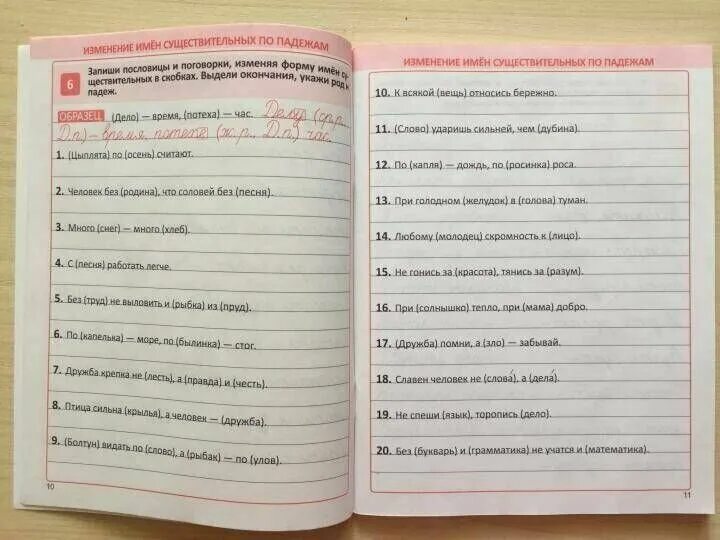 ИЗМЕНЕНИЕ ИМЁН СУЩЕСТВИТЕЛЬНЫХ ПО ПАДЕЖАМ
6
Запиши пословицы и поговорки, изменяя форму имён су-
ществительных в скобках. Выдели окончания, укажи род и
падеж.
ОБРАЗЕЦ (Дело) — время, (потеха) — час. Делу (ср.р.,
Д.п.) — время, потехе (ж.р., Д.п.) час.
1. (Цыплята) по (осень) считают.
2. Человек без (родина), что соловей без (песня).
3. Много (снег) — много (хлеб).
4. С (песня) работать легче.
5. Без (труд) не выловить и (рыбка) из (пруд).
6. По (капелька) — море, по (былинка) — стог.
7. Дружба крепка не (лесть), а (правда) и (честь).
8. Птица сильна (крылья), а человек — (дружба).
9. (Болтун) видать по (слово), а (рыбак) — по (улов).
10
ИЗМЕНЕНИЕ ИМЁН СУЩЕСТВИТЕЛЬНЫХ ПО ПАДЕЖАМ
10. К всякой (вещь) относись бережно.
11. (Слово) ударишь сильней, чем (дубина).
12. По (капля) — дождь, по (росинка) роса.
13. При голодном (желудок) в (голова) туман.
14. Любому (молодец) скромность к (лицо).
15. Не гонись за (красота), тянись за (разум).
16. При (солнышко) тепло, при (мама) добро.
17. (Дружба) помни, а (зло) — забывай.
18. Славен человек не (слова́), а (дела́).
19. Не спеши (язык), торопись (дело).
20. Без (букварь) и (грамматика) не учатся и (математика).
11